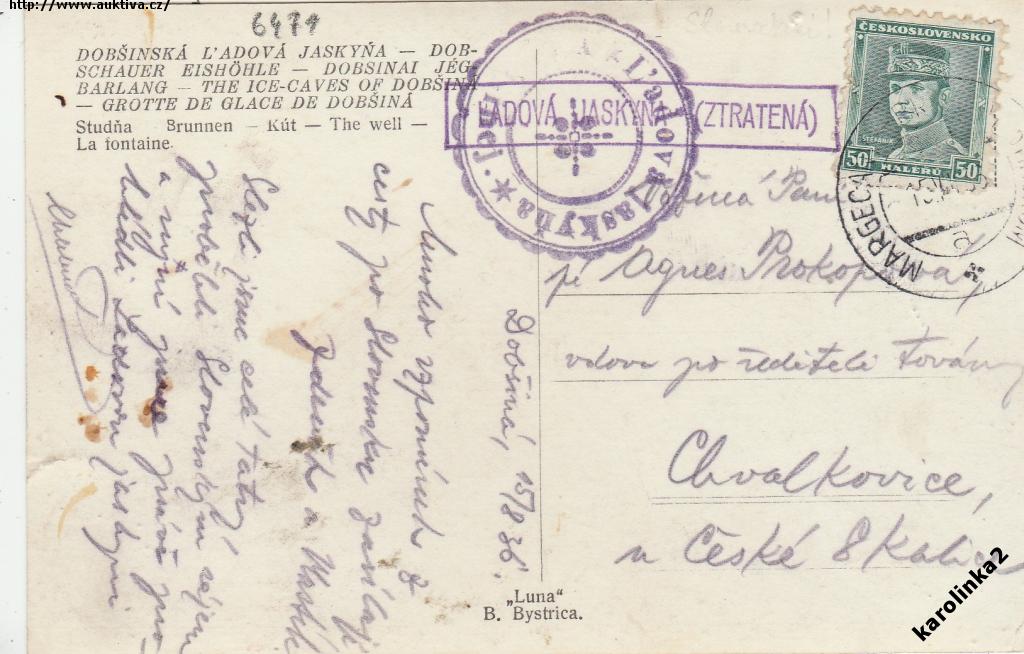 http://www.auktiva.cz/
6471
DOBŠINSKÁ ĽADOVÁ JASKYŇA — DOB-
SCHAUER EISHÖHLE — DOBSINAI JÉG-
BARLANG — THE ICE-CAVES OF DOBŠINÁ
— GROTTE DE GLACE DE DOBŠINÁ
Studňa — Brunnen — Kút — The well —
La fontaine
ĽADOVÁ JASKYŇA (ZTRATENÁ)
Jaskyňa
ČESKOSLOVENSKO
ŠTEFÁNIK
50 HALERŮ 50
MARGECA
Dobšiná, 15/8 36.
Mnoho vzpomínek z
cesty po Slovensku zasílají
Zdeněk a
Sešli jsme celé Tatry
Slovenským rájem
a nyní jsme právě
Ledovou jaskyni
Agnes Prokopová,
vdova po řediteli továrny
Chvalkovice,
u České Skalice
„Luna"
B. Bystrica.
karolinka2